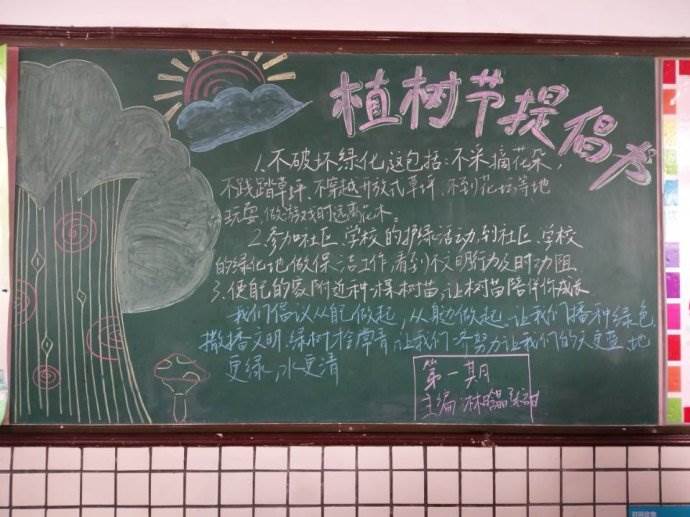 植树节提倡书
1、不破坏绿化,这包括:不采摘花朵,
不践踏草坪、不穿越开放式草坪、不到花坛等地
玩耍,做游戏时远离花木。
2、参加社区、学校的护绿活动,到社区、学校
的绿化地做保洁工作,看到不文明行为及时劝阻
3、在自己的家附近种一棵树苗,让树苗陪伴你成长
我们倡议从自己做起,从身边做起,让我们播种绿色,
撒播文明,绿树格常青,让我们一齐努力,让我们的天更蓝,地
更绿,水更清
第一期
主编:林